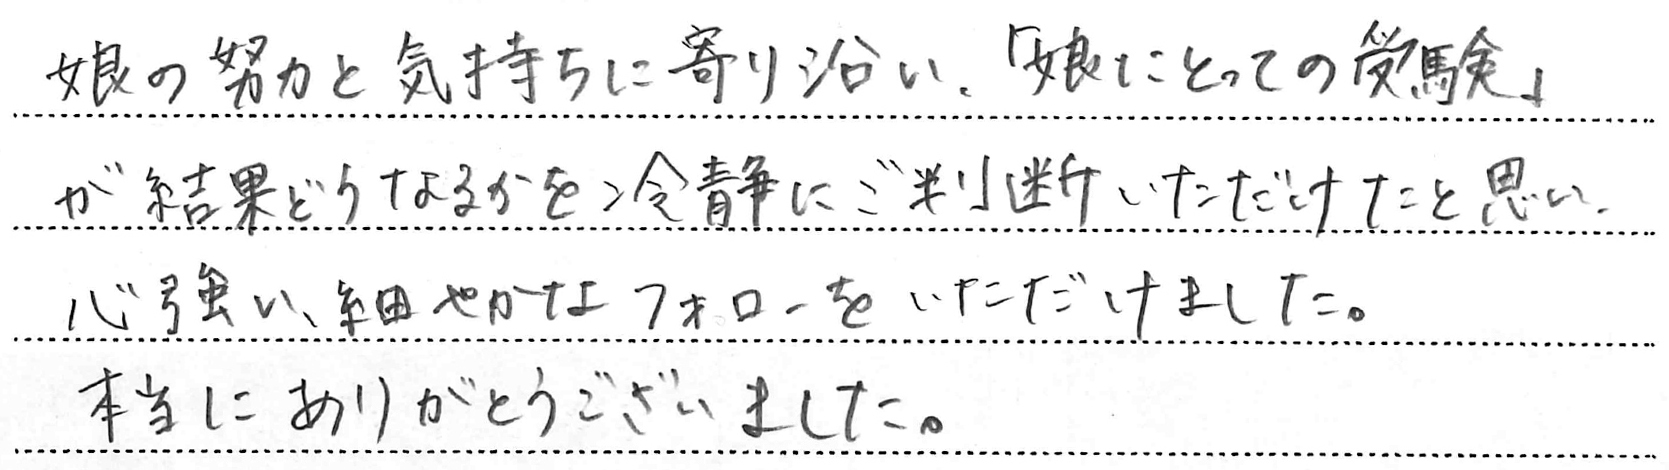 娘の努力と気持ちに寄り沿い、「娘にとっての受験」
が結果どうなるかを冷静にご判断いただけたと思い、
心強い、細やかなフォローをいただけました。
本当にありがとうございました。